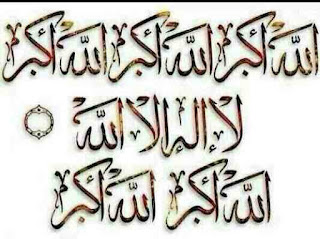 الله أكبر الله أكبر الله أكبر
لا إله إلا الله
الله أكبر الله أكبر